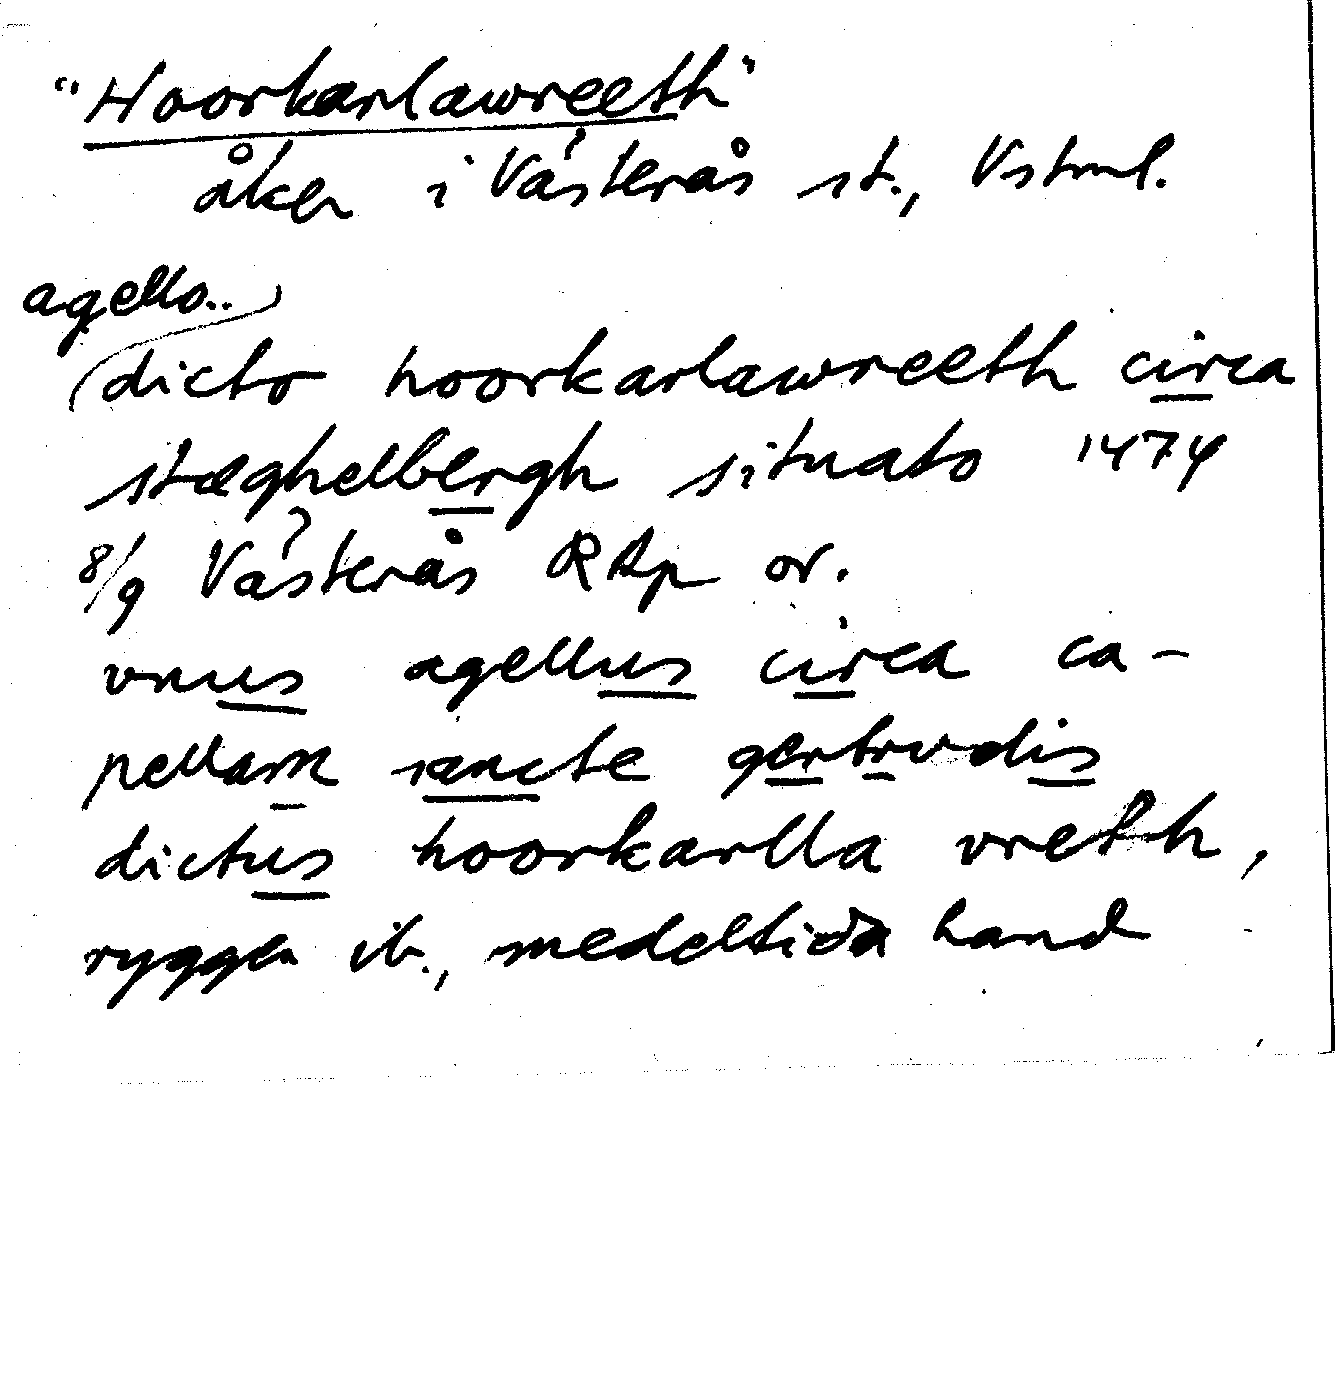 "Hoorkarlawreeth"
åker i Västerås st., Vstml.
agello..
dicto hoorkarlawreeth circa
stæghelbergh situato 1474
8/9 Västerås RAp or.
vnus agellus circa ca-
pellam sancte gertrudis
dictus hoorkarlla vreth,
ryggen ib., medeltida hand